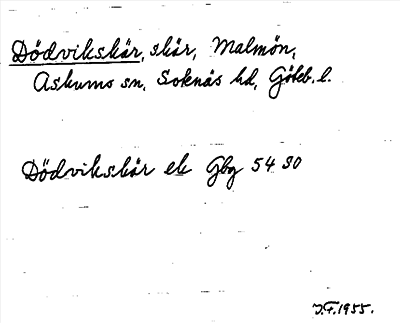 Dödvikskär, skär, Malmön,
Askums sn, Sotenäs hd, Göteb. l.
Dödvikskär ek Gbg 54 SO
J.F. 1955.